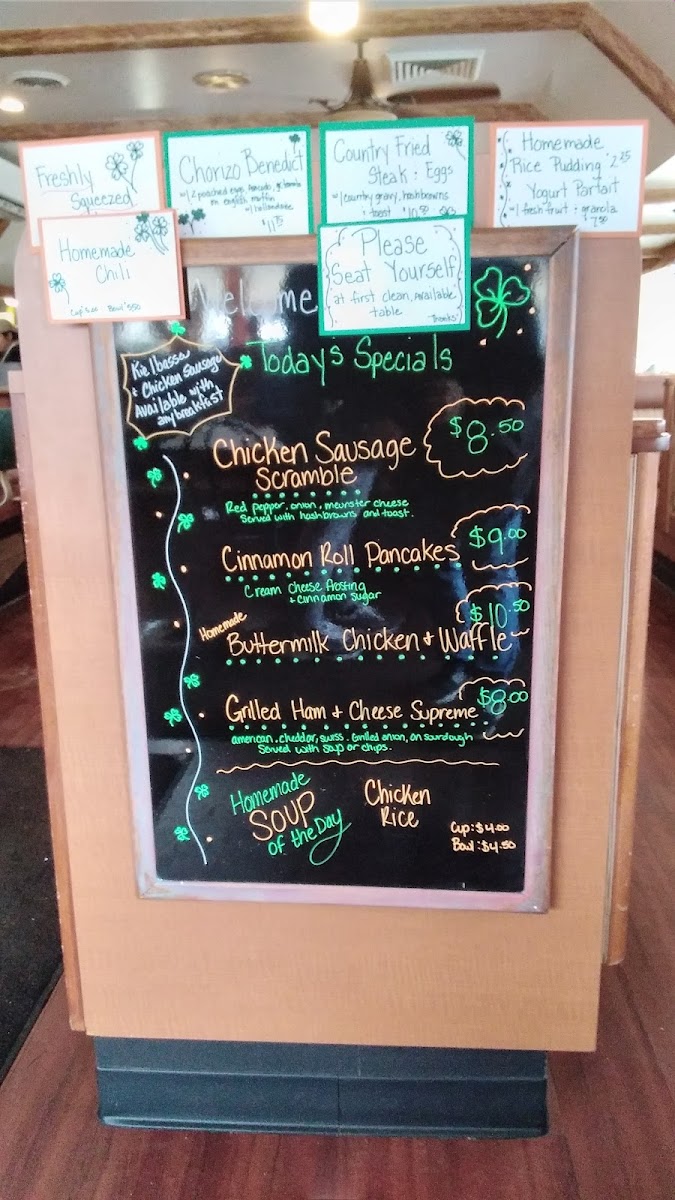 Freshly
Squeezed
Chorizo Benedict
w/ 2 poached eggs, avocado,
on english muffin
w/ hollandaise
$11.75
Country Fried
Steak & Eggs
w/ country gravy, hashbrowns
& toast $10.50
Homemade
Rice Pudding 2.25
Yogurt Parfait
w/ fresh fruit & granola
$7.50
Homemade
Chili
Cup Bowl 5.50
Please
Seat Yourself
at first clean, available
table
-Thanks-
Welcome
Todays Specials
Kielbassa
+ Chicken Sausage
Available with
any breakfast
Chicken Sausage
Scramble
$8.50
Red pepper, onion, meunster cheese
Served with hashbrowns and toast.
Cinnamon Roll Pancakes
$9.00
Cream cheese frosting
+ cinnamon sugar
Homemade
Buttermilk Chicken + Waffle
$10.50
Grilled Ham + Cheese Supreme
$8.00
american, cheddar, swiss, Grilled onion, on sourdough
Served with soup or chips.
Homemade
SOUP
of the Day
Chicken
Rice
Cup: $4.00
Bowl: $4.50